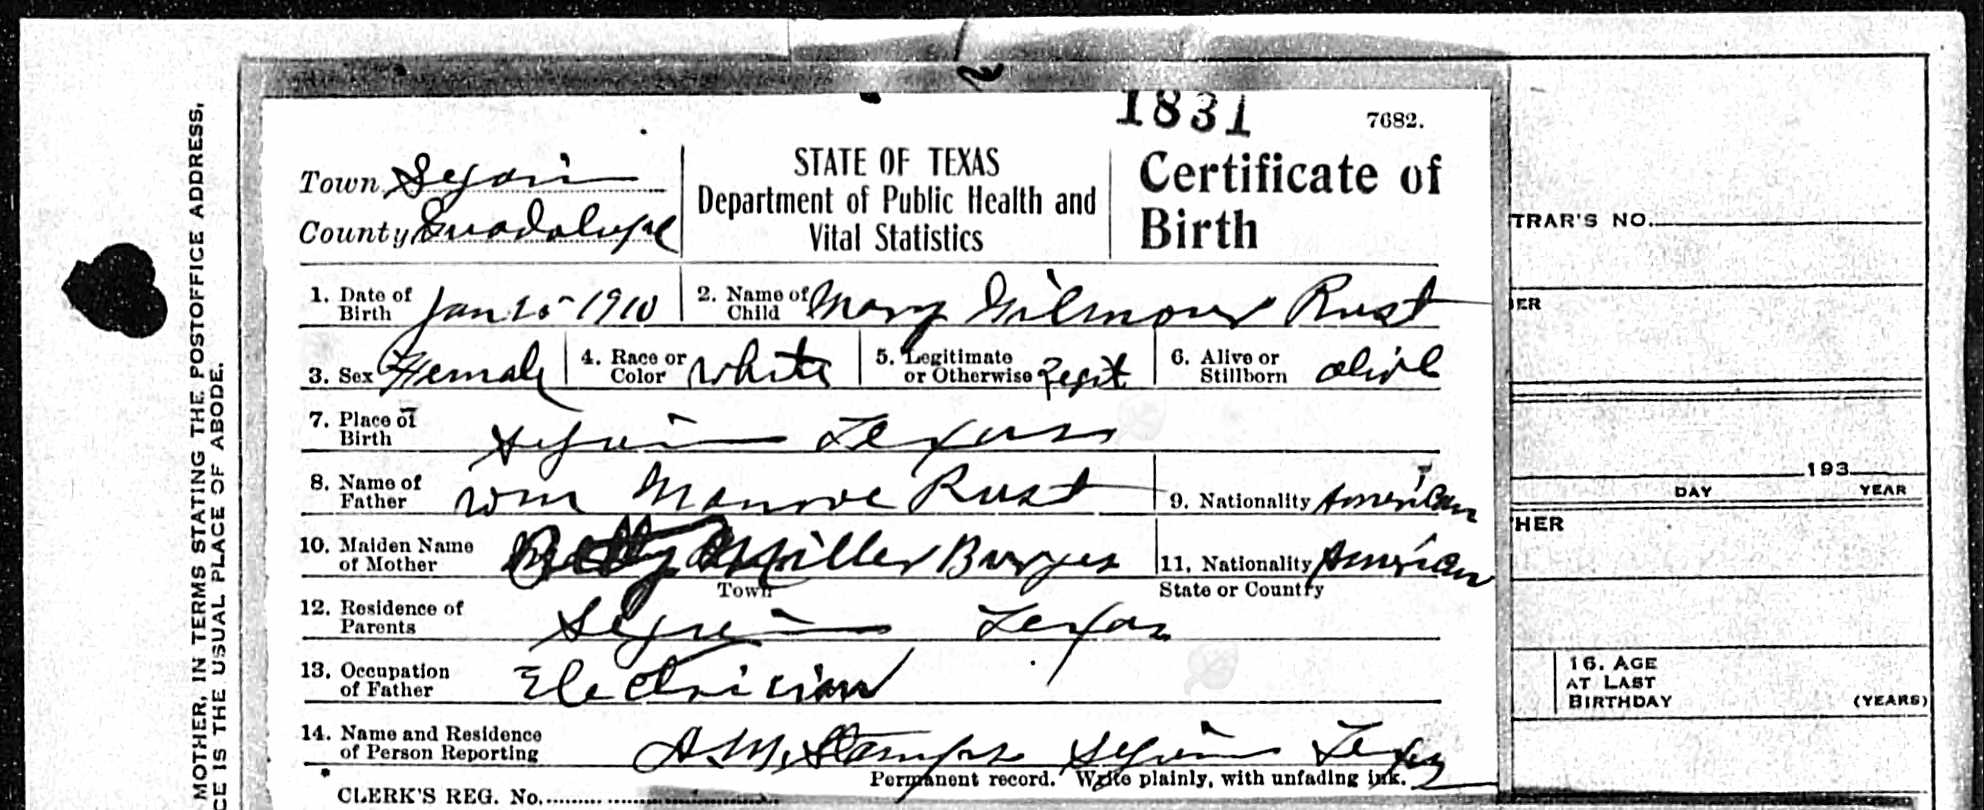 1831
7682.
Town Seguin
County Guadalupe
STATE OF TEXAS
Department of Public Health and
Vital Statistics
Certificate of
Birth
1. Date of Birth Jan 25 1910
2. Name of Child Mary Gilmour Rust
3. Sex Female
4. Race or Color white
5. Legitimate or Otherwise Legit
6. Alive or Stillborn alive
7. Place of Birth Seguin Texas
8. Name of Father Wm Monroe Rust
9. Nationality American
10. Maiden Name of Mother Betty Miller Burges
11. Nationality American
Town
State or Country
12. Residence of Parents Seguin Texas
13. Occupation of Father Electrician
14. Name and Residence of Person Reporting A. M. Stamps Seguin Texas
Permanent record. Write plainly, with unfading ink.
CLERK'S REG. No.
MOTHER, IN TERMS STATING THE POSTOFFICE ADDRESS,
CE IS THE USUAL PLACE OF ABODE.
TRAR'S NO.
ER
193
DAY YEAR
HER
16. AGE
AT LAST
BIRTHDAY (YEARS)